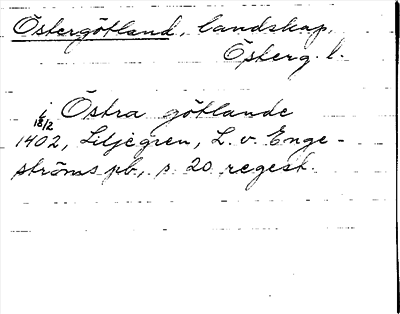 Östergötland, landskap,
Österg. l.
i Östra götlande
18/2
1402, Liljegren, L. v. Enge-
ströms pb., s 20 regest.